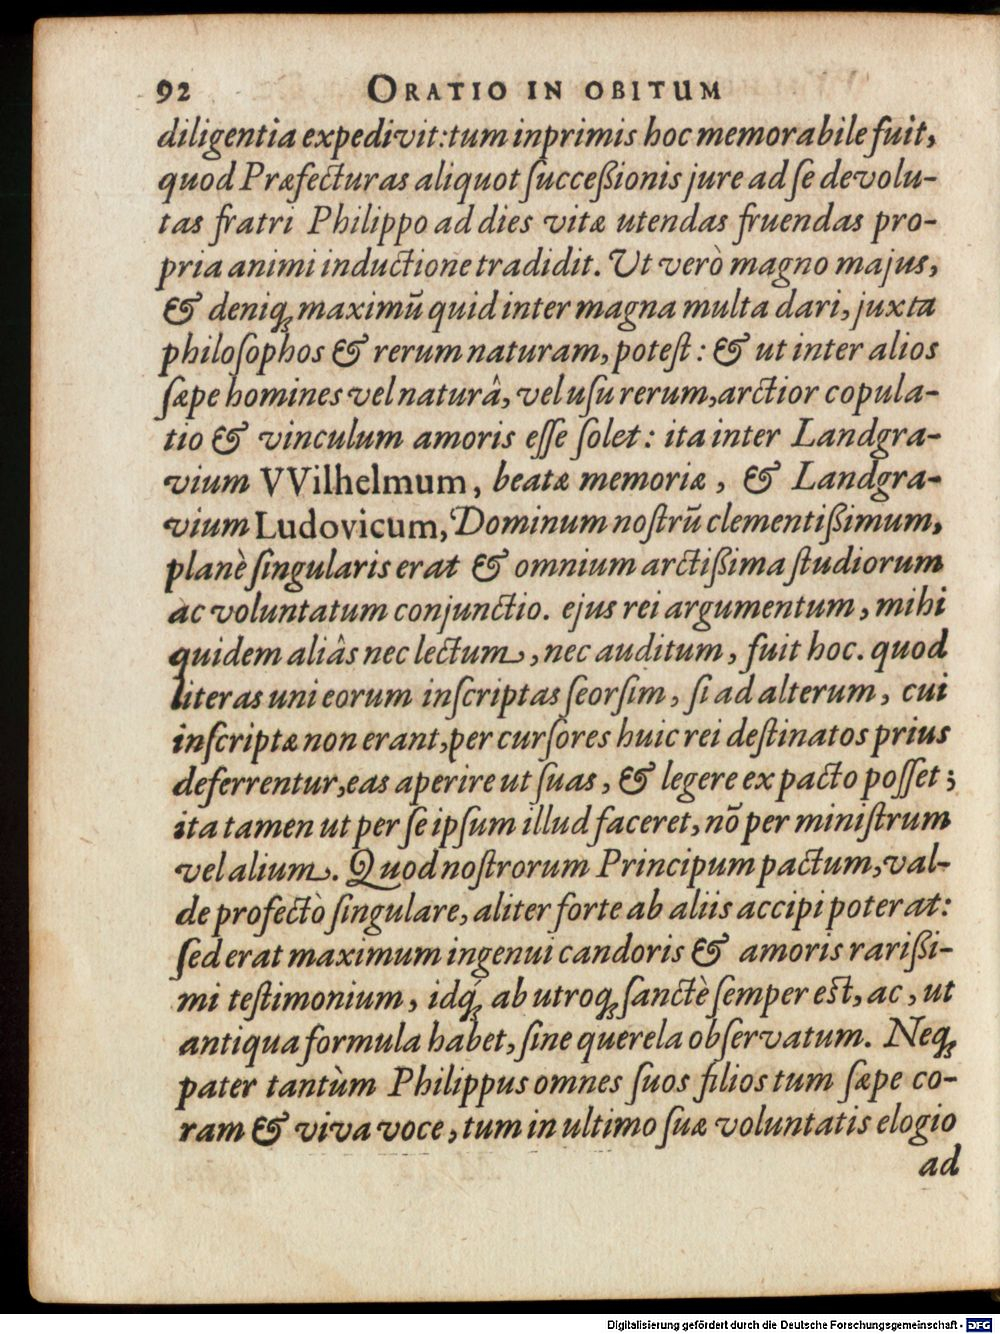 92 ORATIO IN OBITUM
diligentia expedivit: tum inprimis hoc memorabile fuit,
quod Præfecturas aliquot ſucceßionis jure ad ſe devolu-
tas fratri Philippo ad dies vitæ utendas fruendas pro-
pria animi inductione tradidit. Ut verò magno majus,
& deniq; maximū quid inter magna multa dari, juxta
philoſophos & rerum naturam, poteſt: & ut inter alios
ſæpe homines vel naturâ, vel uſu rerum, arctior copula-
tio & vinculum amoris eſſe ſolet: ita inter Landgra-
vium VVilhelmum, beatæ memoriæ, & Landgra-
vium Ludovicum, Dominum noſtrū clementißimum,
planè ſingularis erat & omnium arctißima ſtudiorum
ac voluntatum conjunctio. ejus rei argumentum, mihi
quidem aliâs nec lectum, nec auditum, fuit hoc. quod
literas uni eorum inſcriptas ſeorſim, ſi ad alterum, cui
inſcriptæ non erant, per curſores huic rei deſtinatos prius
deferrentur, eas aperire ut ſuas, & legere ex pacto poſſet;
ita tamen ut per ſe ipſum illud faceret, nō per miniſtrum
vel alium. Quod noſtrorum Principum pactum, val-
de profectò ſingulare, aliter forte ab aliis accipi poterat:
ſed erat maximum ingenui candoris & amoris rarißi-
mi teſtimonium, idq́; ab utroq; ſanctè ſemper eſt, ac, ut
antiqua formula habet, ſine querela obſervatum. Neq;
pater tantùm Philippus omnes ſuos filios tum ſæpe co-
ram & viva voce, tum in ultimo ſuæ voluntatis elogio
ad
Digitalisierung gefördert durch die Deutsche Forschungsgemeinschaft - DFG